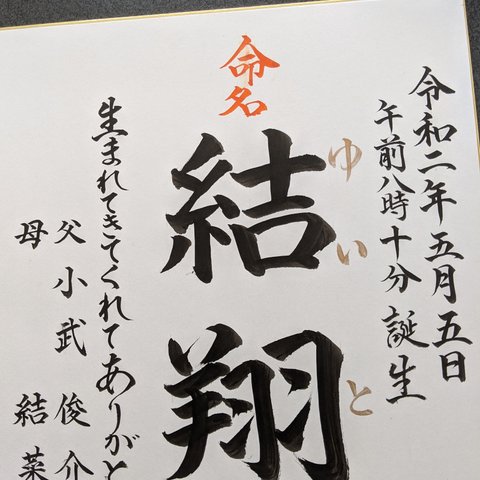 令和二年五月五日
午前八時十分誕生
命名
ゆいと
結翔
生まれてきてくれてありがと
父 小武 俊介
母 結菜